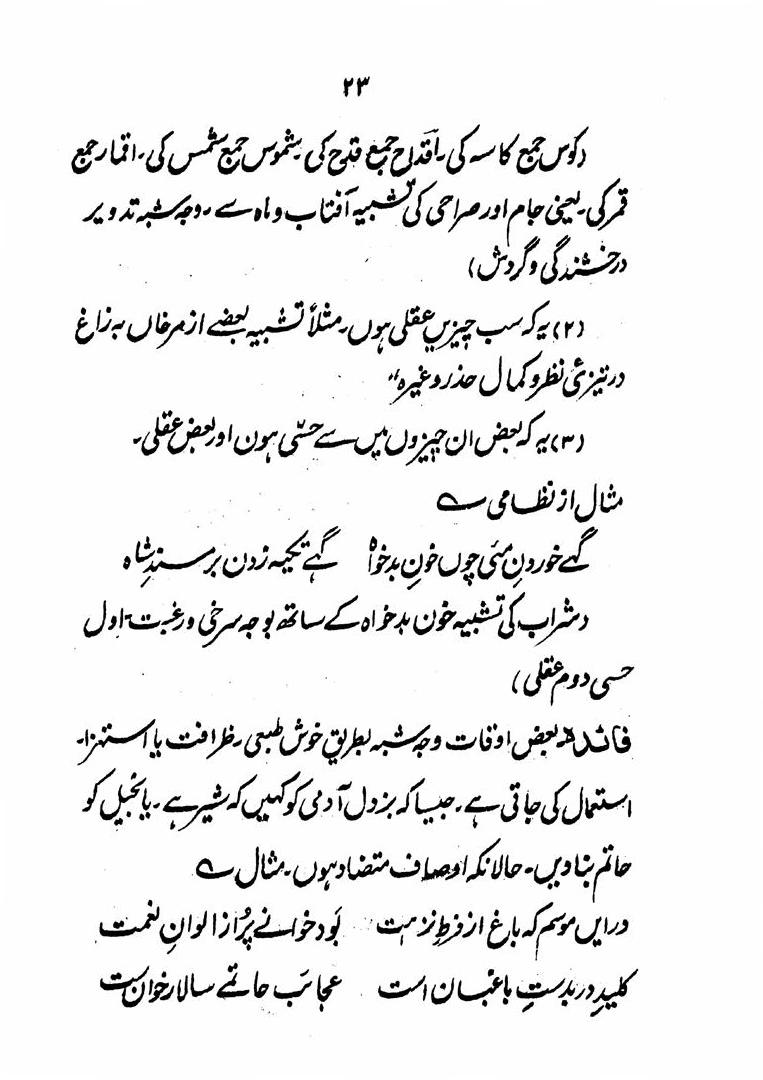 ۲۳
(کؤس جمع کاسہ کی۔ اقداح جمع قدح کی۔ شموس جمع شمس کی۔ اقمار جمع
قمر کی۔ یعنی جام اور صراحی کی تشبیہ آفتاب و ماہ سے۔ وجہ شبہ تدویر
درخشندگی و گردش)
(۲) یہ کہ سب چیزیں عقلی ہوں۔ مثلاً تشبیہ بعضے از مرغاں بہ زاغ
در تیزئ نظر و کمال حذر وغیرہ"
(۳) یہ کہ بعض ان چیزوں میں سے حسّی ہون اور بعض عقلی۔
مثال از نظامی ؎
گہے خوردنِ مئی چوں خونِ بدخواہ گہے تکیہ زدن بر مسندِ شاہ
(شراب کی تشبیہ خون بدخواہ کے ساتھ بوجہ سرخی و رغبت۔ اول
حسی دوم عقلی)
فائدہ۔ بعض اوقات وجہ شبہ بطریق خوش طبعی۔ ظرافت یا استہزا۔
استعمال کی جاتی ہے۔ جیسا کہ بزدل آدمی کو کہیں کہ شیر ہے۔ یا بخیل کو
حاتم بنا دیں۔ حالانکہ اوصاف متضاد ہوں۔ مثال ؎
درایں موسم کہ باغ از فرطِ نزہت بَود خوانے پُر از الوانِ نعمت
کلیدِ در بدستِ باغبان است عجائب حاتمے سالارِ خوان ست